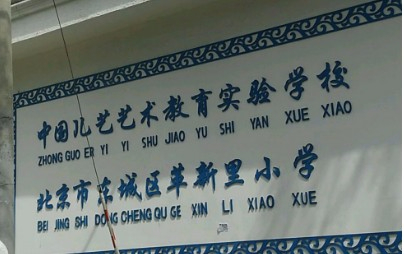 中国儿艺艺术教育实验学校
ZHONG GUO ER YI YI SHU JIAO YU SHI YAN XUE XIAO
北京市东城区革新里小学
BEI JING SHI DONG CHENG QU GE XIN LI XIAO XUE